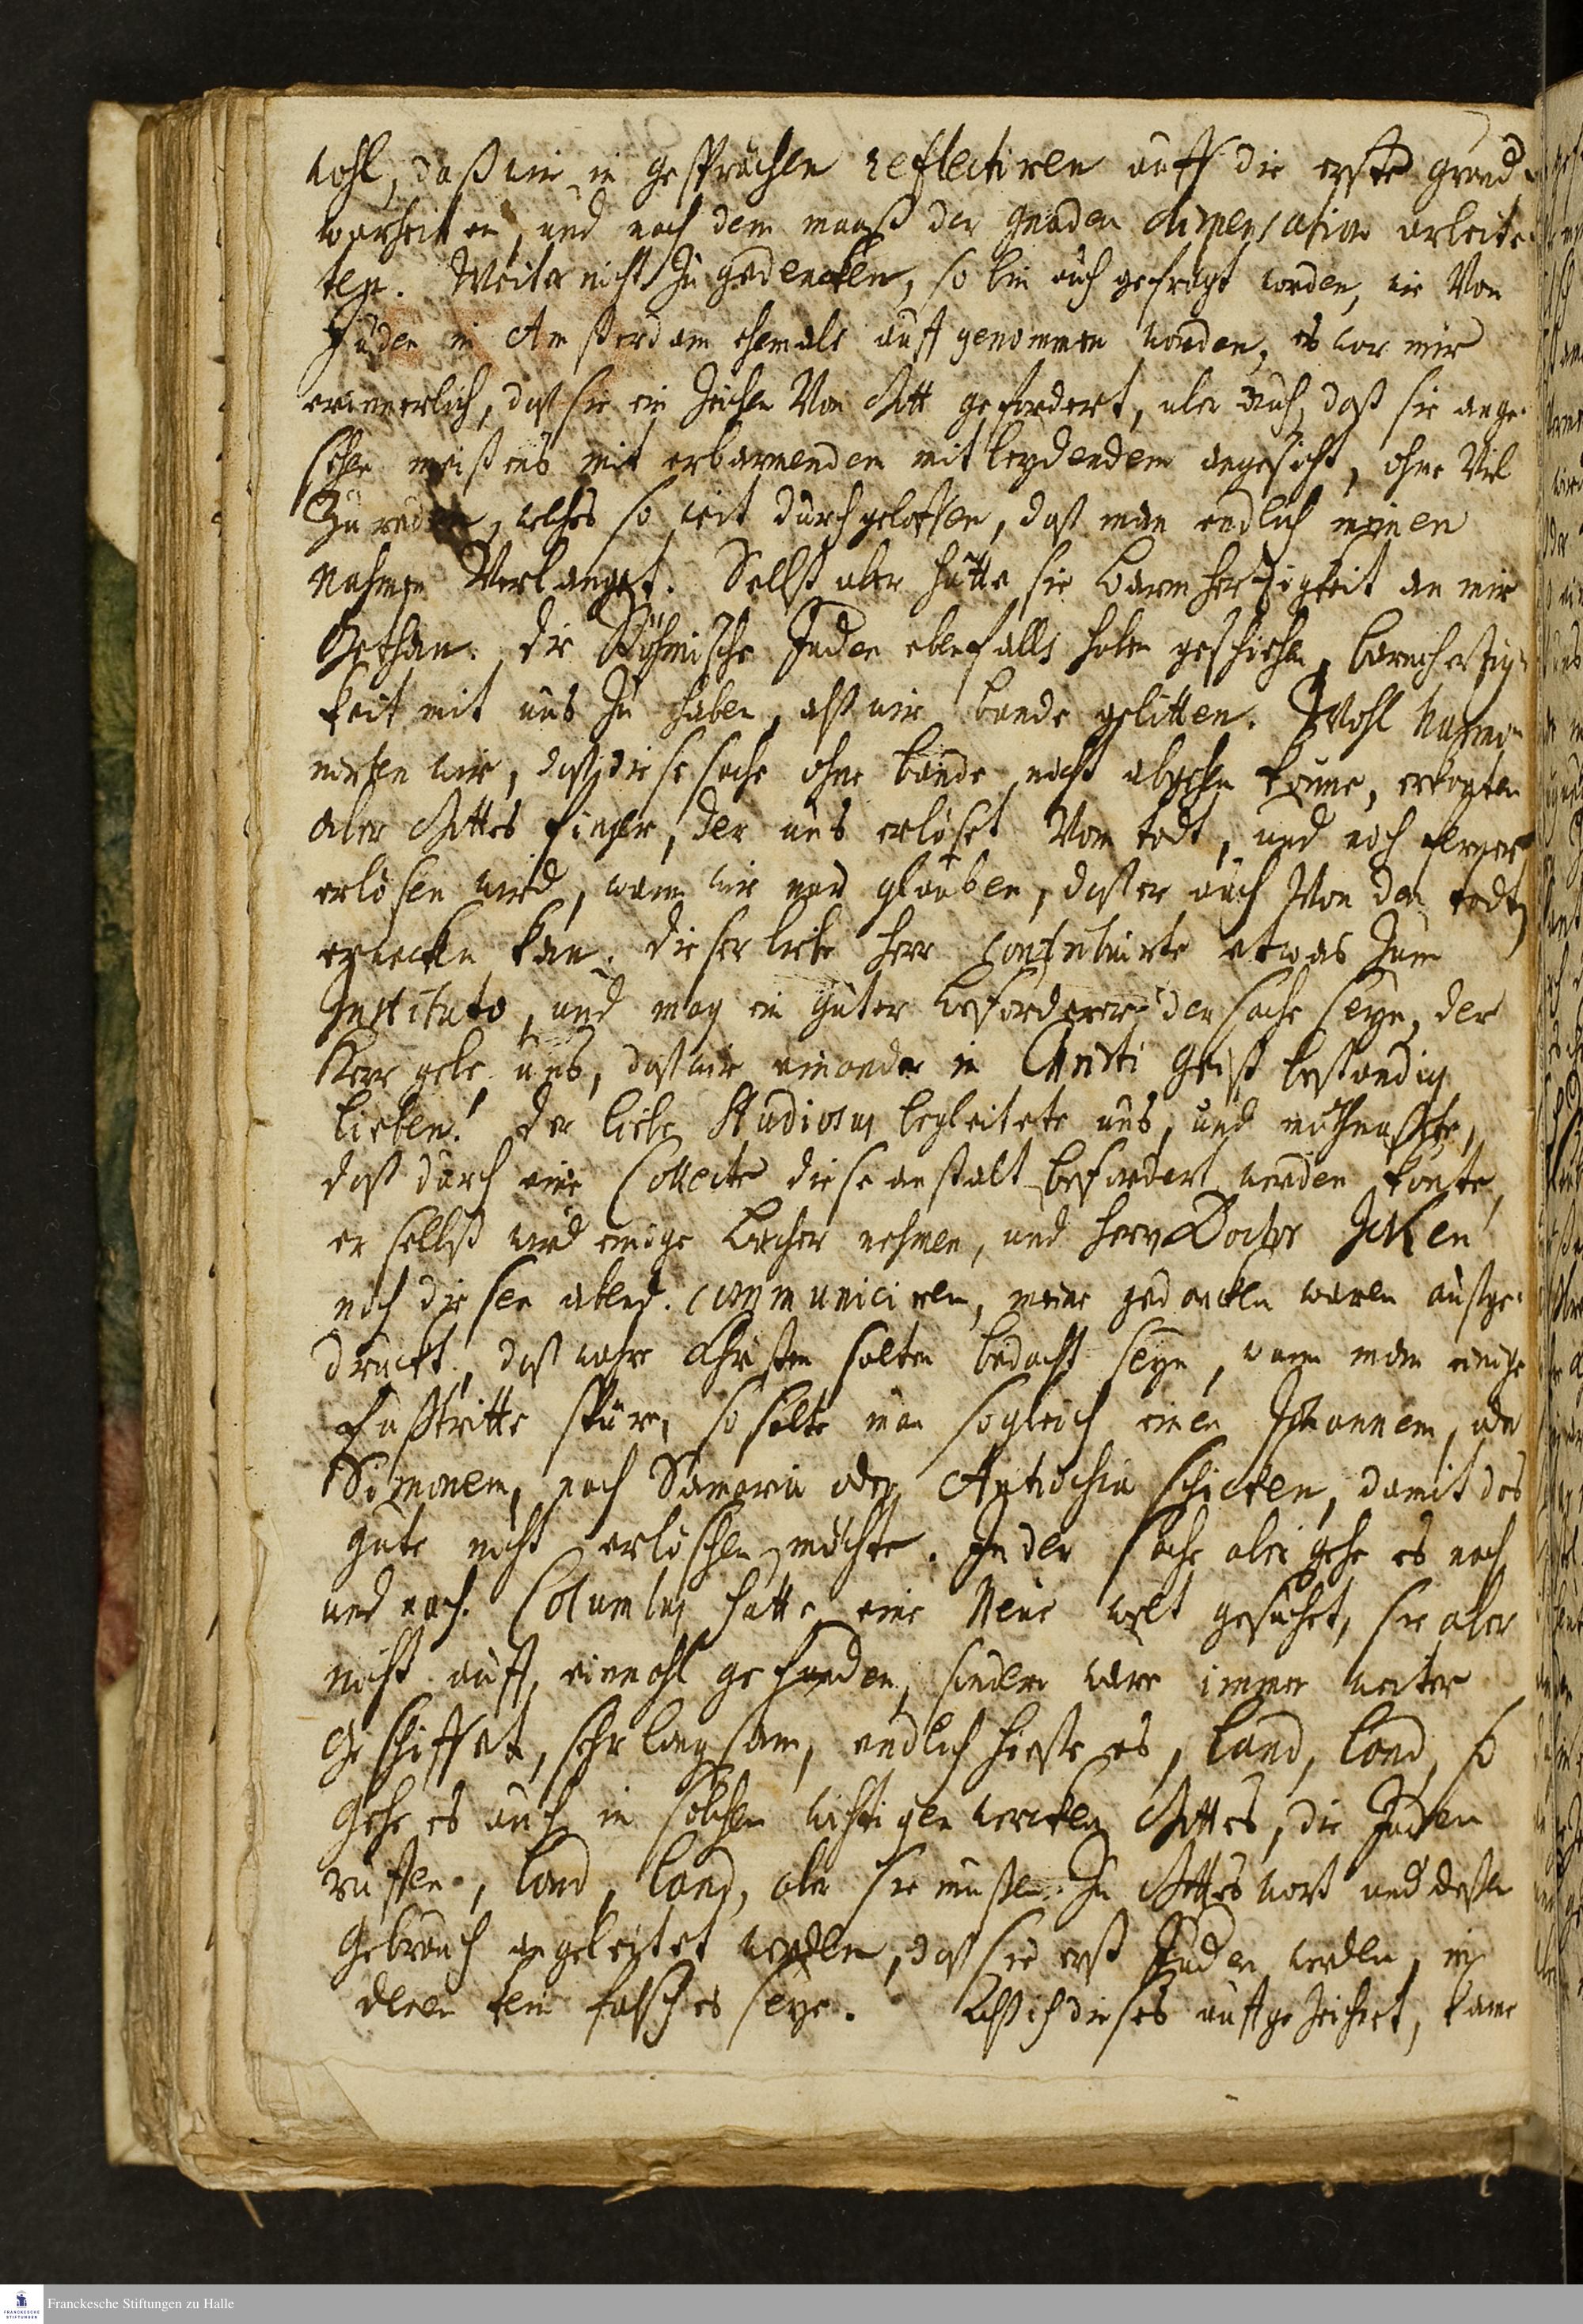 wohl, daß wir in gesprächen reflectiren auff die erste grund-
warheiten, und nach dem maaß der gnaden dispensation arbeite-
ten. Weiter nicht zu gedencken, so bin auch gefragt worden, wie Von
Juden in Amsterdam ehemals auffgenommen worden, es war mir
erinnerlich, daß sie ein Zeichen Von Gott gefordert, aber auch, daß sie ange-
sehen meistens mit erbarmendem mitleydendem angesicht, ohne Viel
Zu reden, welches so weit durchgeloffen, daß man endlich meinen
Nahmen Verlanget. Selbst aber hätte sie barmhertzigkeit an mir
Gethan. die Böhmische Juden ebenfalls haben geschiehen, barmhertzig-
keit mit uns Zu haben, alß wir bande gelitten. Wohl
merken wir, daß diese sache ohne bande nicht abgehen könne,
aber Gottes finger, der uns erlöset Vom todt, und noch ferner
erlösen wird, wann wir nur glauben, daß er auch Von den todten
erwecken kan. dieser liebe herr contribuirte etwas Zum
Instituto, und mag ein guter beforderer der sache seyn, der
Herr gebe uns, daß wir einander in Christi geist bestandig
lieben! der liebe Studiosus begleitete uns, und muthmaßte,
daß durch eine Collecte diese anstalt befordert werden könte,
er selbst wird einige bücher nehmen, und herrn Doctor Iken
noch diesen abend communiciren, meine gedancken waren außge-
druckt, daß wahre Christen solten bedacht seyn, wann man einige
Fußtritte spüre, so solte man sogleich einen Johannem, oder
Simonem, nach Samaria oder Antiochia schicken, damit das
gute nicht erlöschen möchte. In der sache aber gehe es nach
und nach. Columbus hatte eine Neue welt gesuchet, sie aber
nicht auff einmahl gefunden, sondern ware immer weiter
Geschiffet, sehr langsam, endlich hieße es, land, land, so
Gehe es auch in solchen wichtigen wercken Gottes, die Juden
ruffen, land, land, aber sie müßen Zu Gottes wort und deßen
Gebrauch angeleitet werden, daß sie erst Juden werden, in
denen kein falsches seye. Alß ich dieses auffgezeichnet, kame